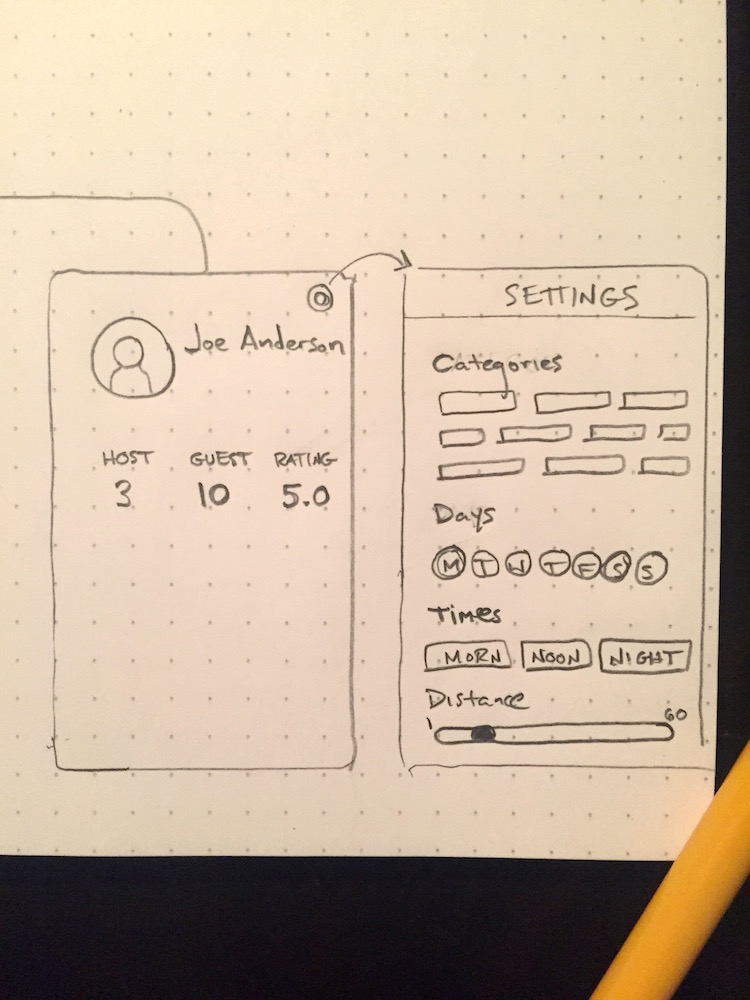 Joe Anderson
HOST GUEST RATING
3 10 5.0
SETTINGS
Categories
Days
M T W T F S S
Times
MORN NOON NIGHT
Distance
1 60